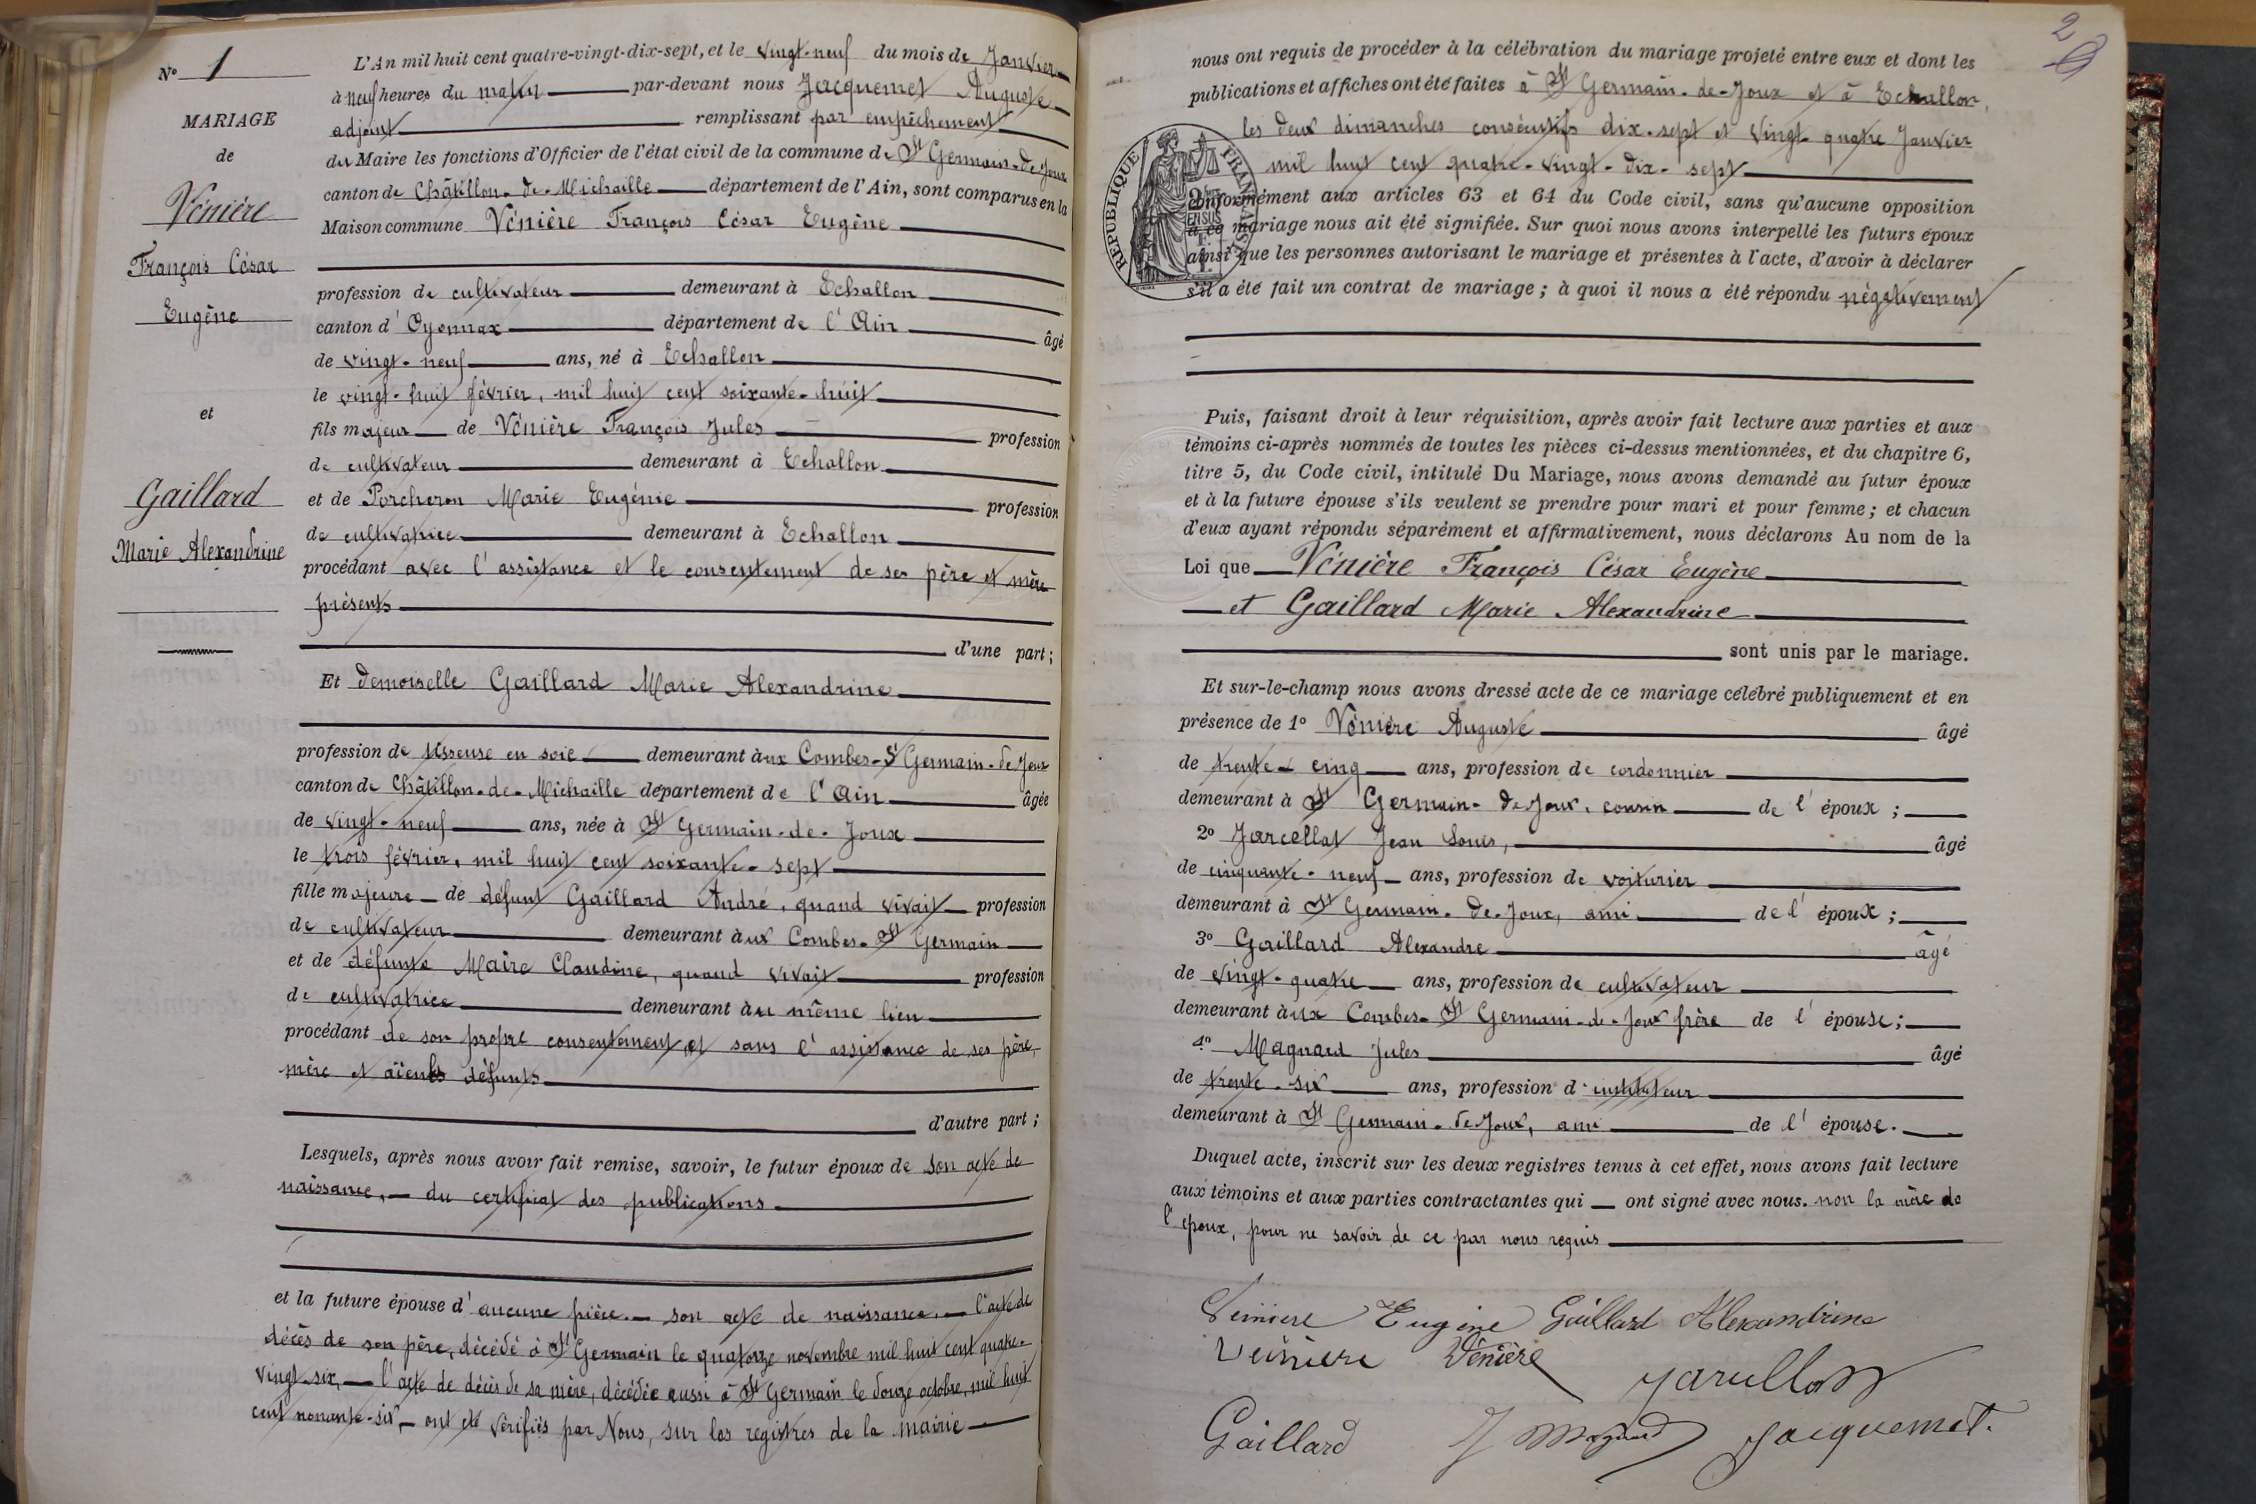 N° 1
MARIAGE
de
Vénière
François César
Eugène
et
Gaillard
Marie Alexandrine
L'An mil huit cent quatre-vingt-dix-sept, et le vingt-neuf du mois de Janvier
à neuf heures du matin par-devant nous Jacquemet Auguste
adjoint remplissant par empêchement
du Maire les fonctions d'Officier de l'état civil de la commune de St Germain-de-Joux
canton de Châtillon-de-Michaille département de l'Ain, sont comparus en la
Maison commune Vénière François César Eugène
profession de cultivateur demeurant à Echallon
canton d'Oyonnax département de l'Ain âgé
de vingt-neuf ans, né à Echallon
le vingt-huit février, mil huit cent soixante-huit
fils majeur de Vénière François Jules profession
de cultivateur demeurant à Echallon
et de Porcheron Marie Eugénie profession
de cultivatrice demeurant à Echallon
procédant avec l'assistance et le consentement de ses père et mère
présents
d'une part;
Et demoiselle Gaillard Marie Alexandrine
profession de tisseuse en soie demeurant aux Combes-St Germain-de-Joux
canton de Châtillon-de-Michaille département de l'Ain âgée
de vingt-neuf ans, née à St Germain-de-Joux
le trois février, mil huit cent soixante-sept
fille majeure de défunt Gaillard André, quand vivait profession
de cultivateur demeurant aux Combes-St Germain
et de défunte Maire Claudine, quand vivait profession
de cultivatrice demeurant au même lieu
procédant de son propre consentement et sans l'assistance de ses père,
mère et aïeuls défunts
d'autre part;
Lesquels, après nous avoir fait remise, savoir, le futur époux de son acte de
naissance, du certificat des publications
et la future épouse d'aucune pièce. son acte de naissance, l'acte de
décès de son père, décédé à St Germain le quatorze novembre mil huit cent quatre-
vingt-six, l'acte de décès de sa mère, décédée aussi à St Germain le douze octobre, mil huit
cent nonante-six, ont été vérifiés par Nous, sur les registres de la mairie
2
nous ont requis de procéder à la célébration du mariage projeté entre eux et dont les
publications et affiches ont été faites à St Germain-de-Joux et à Echallon,
les deux dimanches consécutifs dix-sept et vingt-quatre Janvier
mil huit cent quatre-vingt-dix-sept
RÉPUBLIQUE FRANÇAISE
conformément aux articles 63 et 64 du Code civil, sans qu'aucune opposition
à ce mariage nous ait été signifiée. Sur quoi nous avons interpellé les futurs époux
ainsi que les personnes autorisant le mariage et présentes à l'acte, d'avoir à déclarer
s'il a été fait un contrat de mariage; à quoi il nous a été répondu négativement
Puis, faisant droit à leur réquisition, après avoir fait lecture aux parties et aux
témoins ci-après nommés de toutes les pièces ci-dessus mentionnées, et du chapitre 6,
titre 5, du Code civil, intitulé Du Mariage, nous avons demandé au futur époux
et à la future épouse s'ils veulent se prendre pour mari et pour femme; et chacun
d'eux ayant répondu séparément et affirmativement, nous déclarons Au nom de la
Loi que Vénière François César Eugène
et Gaillard Marie Alexandrine
sont unis par le mariage.
Et sur-le-champ nous avons dressé acte de ce mariage célébré publiquement et en
présence de 1° Vénière Auguste âgé
de trente-cinq ans, profession de cordonnier
demeurant à St Germain-de-Joux, cousin de l'époux;
2° Jarcellat Jean Louis, âgé
de cinquante-neuf ans, profession de voiturier
demeurant à St Germain-de-Joux, ami de l'époux;
3° Gaillard Alexandre âgé
de vingt-quatre ans, profession de cultivateur
demeurant aux Combes-St Germain-de-Joux frère de l'épouse;
4° Magnard Jules âgé
de trente-six ans, profession d'instituteur
demeurant à St Germain-de-Joux, ami de l'épouse.
Duquel acte, inscrit sur les deux registres tenus à cet effet, nous avons fait lecture
aux témoins et aux parties contractantes qui ont signé avec nous. non la mère de
l'époux, pour ne savoir de ce par nous requis
Vénière Eugène Gaillard Alexandrine
Vénière Vénière Jarcellat
Gaillard J Magnard Jacquemet.